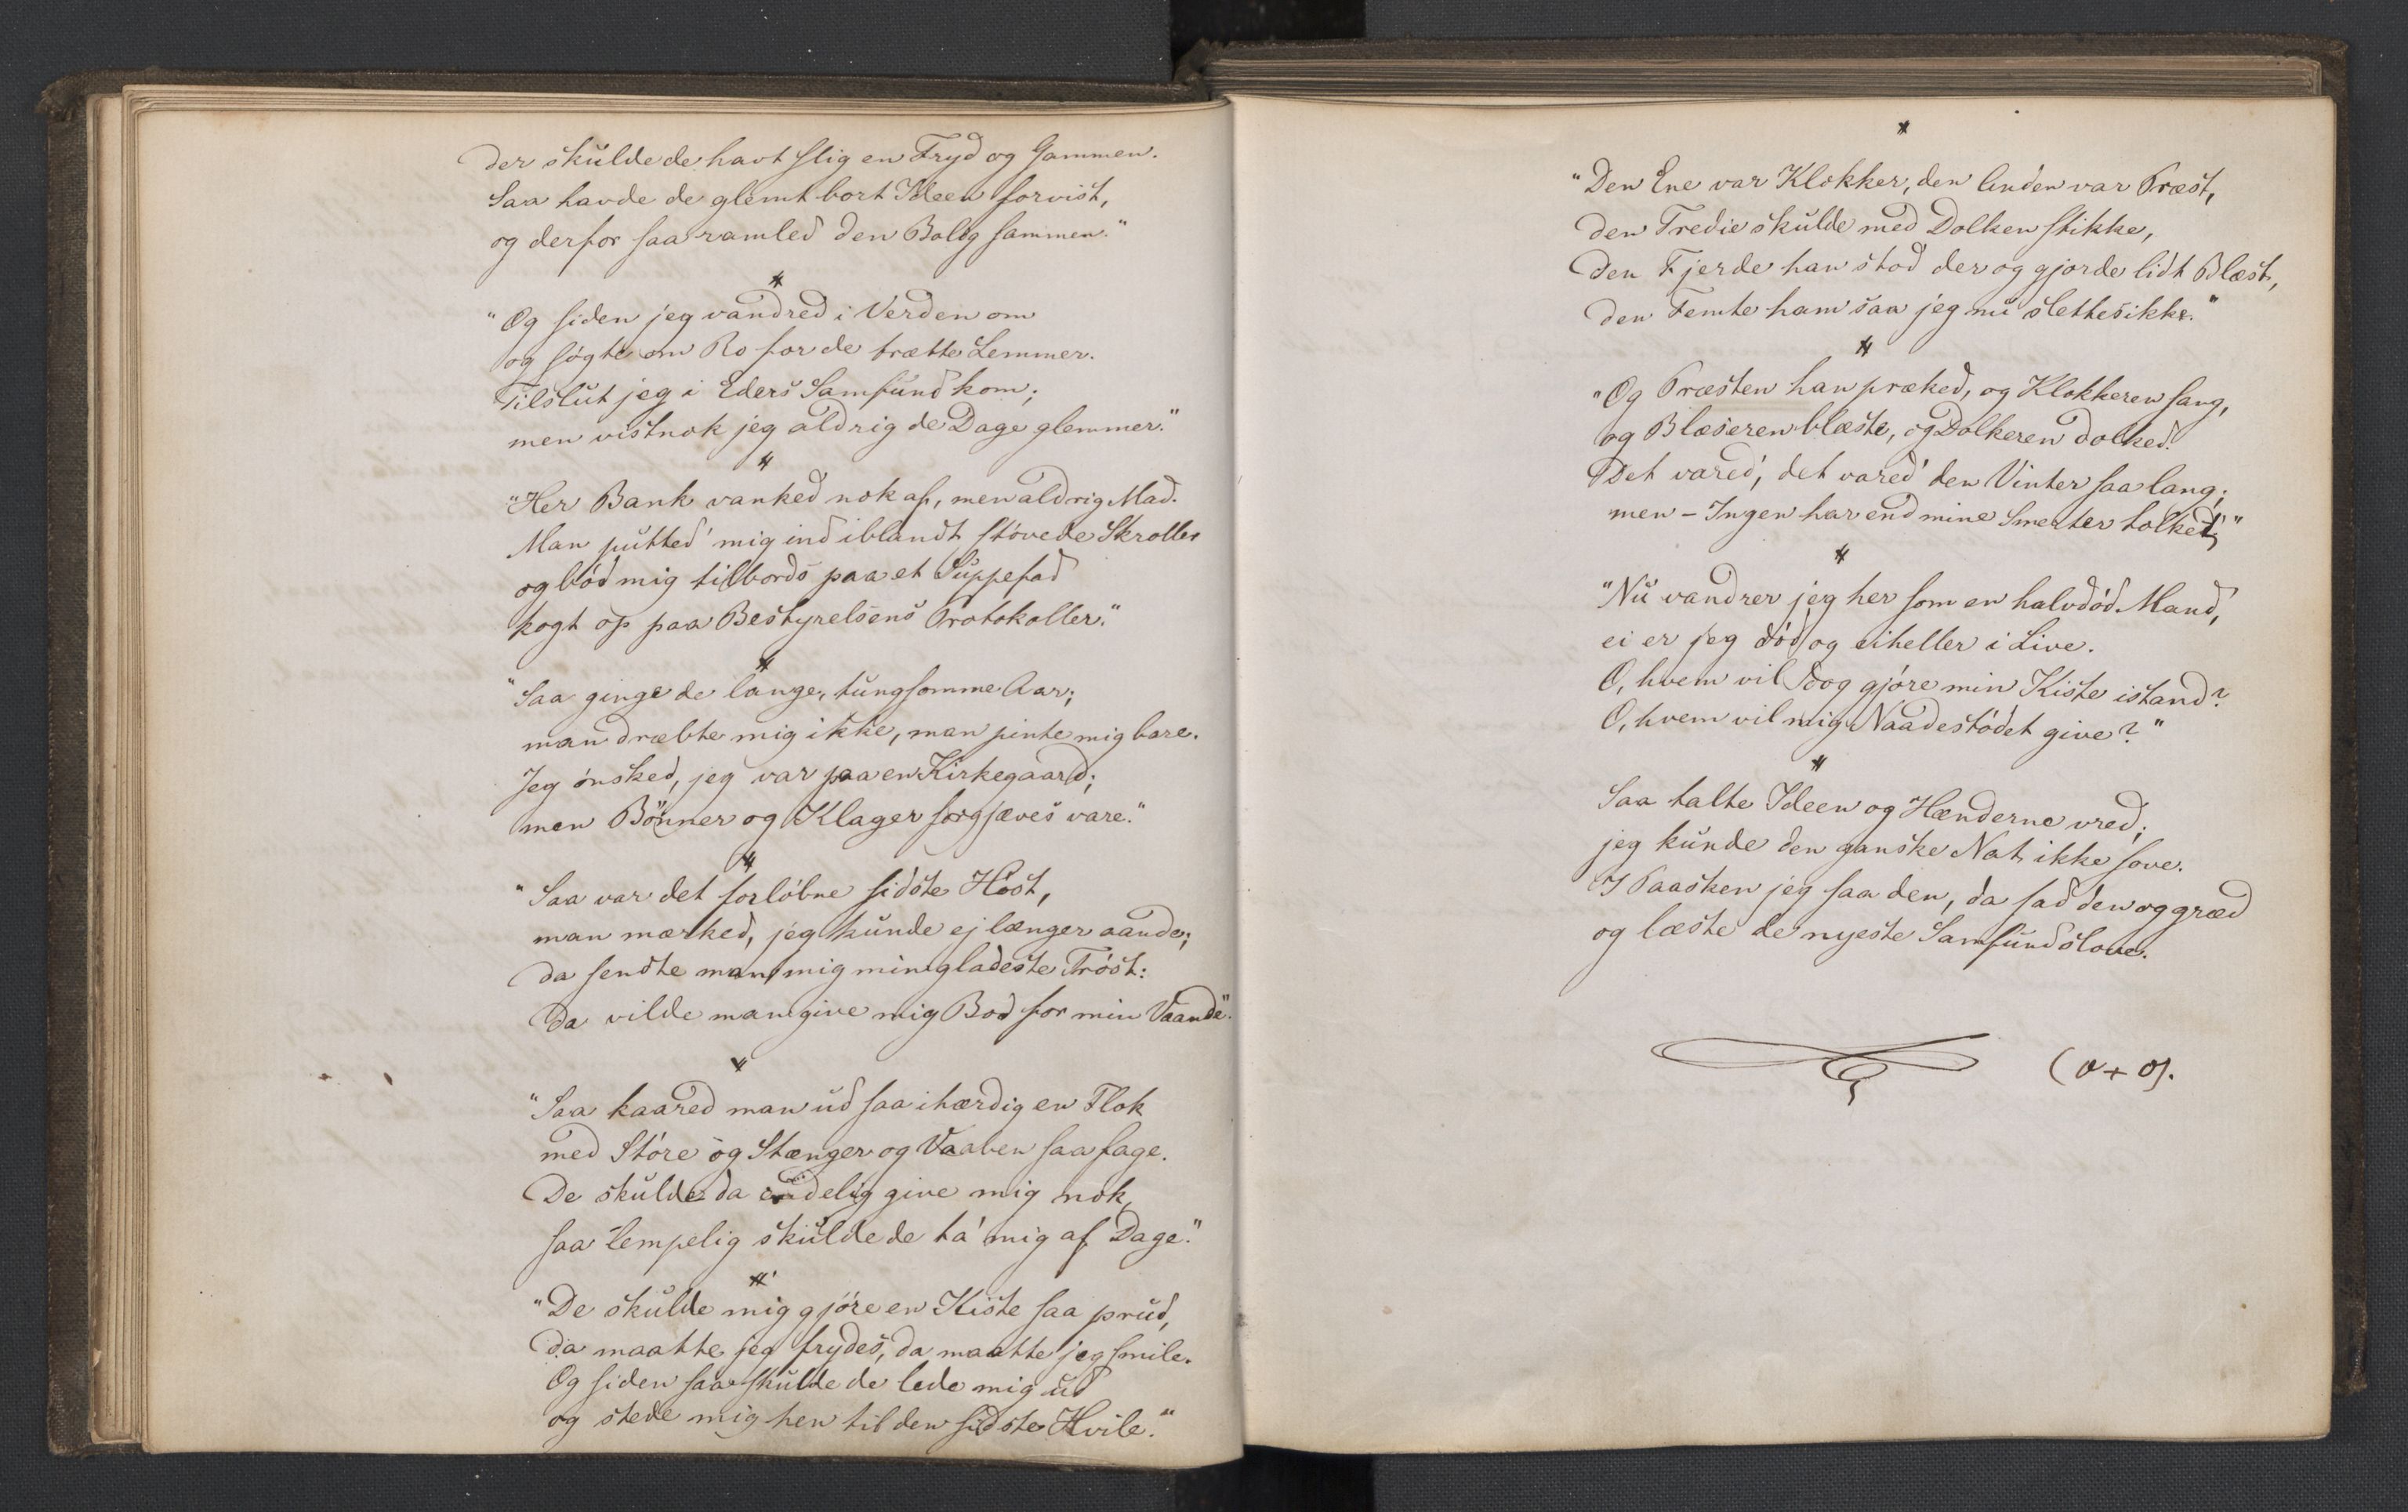 der skulde de havt slig en Fryd og Gammen.
Saa havde de glemt bort Ideen forvist,
og derfor saa ramled den Bolig sammen."
"Og siden jeg vandred i Verden om
og søgte om Ro for de trætte Lemmer.
Tilslut jeg i Eders Samfund kom;
men vistnok jeg aldrig de Dage glemmer."
"Her Bank vanked nok af, men aldrig Mad.
Man putted' mig ind iblandt støvede Skroller
og bød mig tilbords paa et Suppefad
kogt op paa Bestyrelsens Protokoller."
"Saa ginge de lange, tungsomme Aar;
man dræbte mig ikke, man pinte mig bare.
Jeg ønsked, jeg var paa en Kirkegaard;
men Bønner og Klager forgjæves vare."
"Saa var det forløbne sidste Høst,
man mærked, jeg kunde ej længer aande;
da sendte man mig min gladeste Trøst:
Da vilde man give mig Bod for min Vaande".
"Saa kaared man ud saa ihærdig en Flok
med Støre og Stænger og Vaaben saa fage.
De skulde da endelig give mig nok,
saa lempelig skulde de ta' mig af Dage."
"De skulde mig gjøre en Kiste saa prud,
da maatte jeg frydes, da maatte jeg smile.
Og siden saa skulde de lede mig ud
og stede mig hen til den sidste Hvile."
"Den Ene var Klokker, den Anden var Præst,
den Tredie skulde med Dolken stikke,
den Fjerde han stod der og gjorde lidt Blæst,
den Femte ham saa jeg nu slettes ikke."
"Og Præsten han præked, og Klokkeren sang,
og Blæseren blæste, og Dolkeren dolked.
Det vared', det vared' den Vinter saa lang;
men – Ingen har end mine Smerter tolked,"
"Nu vandrer jeg her som en halvdød Mand,
ei er jeg død og eiheller i Live.
O, hvem vil dog gjøre min Kiste istand?
O, hvem vil mig Naadestødet give?"
Saa talte Ideen og Hænderne vred;
jeg kunde den ganske Nat ikke sove.
I Paasken jeg saa den, da sad den og græd
og læste de nyeste Samfundslove.
(o + o).